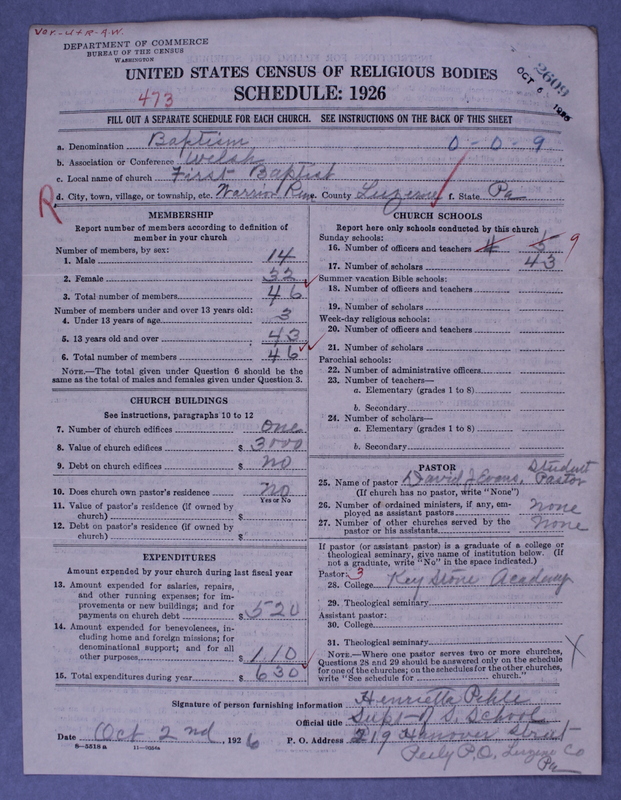 Vor.-U+R-A.W.
DEPARTMENT OF COMMERCE
BUREAU OF THE CENSUS
WASHINGTON
UNITED STATES CENSUS OF RELIGIOUS BODIES
SCHEDULE: 1926
473
2609
OCT 6 1926
FILL OUT A SEPARATE SCHEDULE FOR EACH CHURCH. SEE INSTRUCTIONS ON THE BACK OF THIS SHEET
a. Denomination Baptism 0-0-9
b. Association or Conference Welsh
c. Local name of church First Baptist
R
d. City, town, village, or township, etc. Warrior Run e. County Luzerne f. State Pa
MEMBERSHIP
Report number of members according to definition of
member in your church
Number of members, by sex:
1. Male 14
2. Female 32
3. Total number of members 46
Number of members under and over 13 years old:
4. Under 13 years of age 3
5. 13 years old and over 43
6. Total number of members 46
NOTE.—The total given under Question 6 should be
same as the total of males and females given under Question 3.
CHURCH BUILDINGS
See instructions, paragraphs 10 to 12
7. Number of church edifices One
8. Value of church edifices $ 3000
9. Debt on church edifices $ no
10. Does church own pastor's residence no
Yes or No
11. Value of pastor's residence (if owned by
church) $
12. Debt on pastor's residence (if owned by
church) $
EXPENDITURES
Amount expended by your church during last fiscal year
13. Amount expended for salaries, repairs,
and other running expenses; for im-
provements or new buildings; and for
payments on church debt $ 520
14. Amount expended for benevolences, in-
cluding home and foreign missions; for
denominational support; and for all
other purposes 110
15. Total expenditures during year $ 630
CHURCH SCHOOLS
Report here only schools conducted by this church
Sunday schools:
16. Number of officers and teachers 4 5 9
17. Number of scholars 43
Summer vacation Bible schools:
18. Number of officers and teachers
19. Number of scholars
Week-day religious schools:
20. Number of officers and teachers
21. Number of scholars
Parochial schools:
22. Number of administrative officers
23. Number of teachers—
a. Elementary (grades 1 to 8)
b. Secondary
24. Number of scholars—
a. Elementary (grades 1 to 8)
b. Secondary
PASTOR
25. Name of pastor David J Evans, Student Pastor
(If church has no pastor, write "None")
26. Number of ordained ministers, if any, em-
ployed as assistant pastors None
27. Number of other churches served by the
pastor or his assistants None
If pastor (or assistant pastor) is a graduate of a college or
theological seminary, give name of institution below. (If
not a graduate, write "No" in the space indicated.)
Pastor: 3
28. College Key Stone Academy
29. Theological seminary
Assistant pastor:
30. College
31. Theological seminary
X
NOTE.—Where one pastor serves two or more churches,
Questions 28 and 29 should be answered only on the schedule
for one of the churches; on the schedules for the other churches,
write "See schedule for church."
Signature of person furnishing information Henrietta
Official title Supt. S. School
Date Oct 2nd, 1926 P. O. Address 219 Hanover Street
8-5518a
Peely P.O. Luzerne Co
Pa